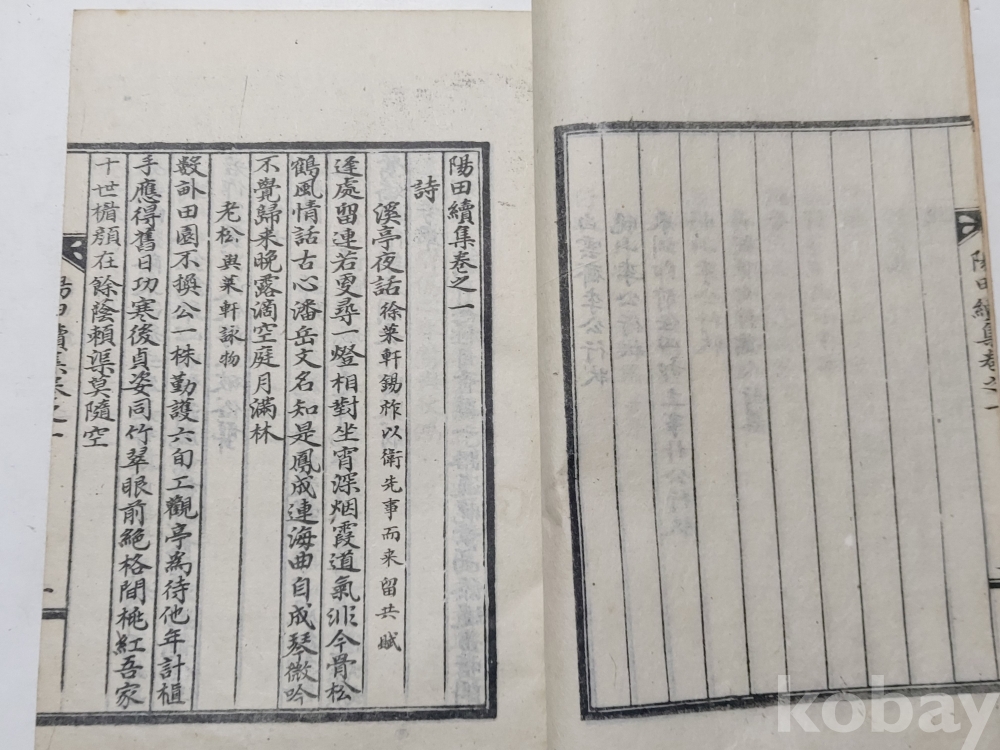 陽田續集卷之一
詩
溪亭夜話徐菜軒錫祚以衛先事而来留共賦
逢處留連若更尋一燈相對坐宵深烟霞道氣非今骨松
鶴風情話古心潘岳文名知是鳳成連海曲自成琴微吟
不覺歸来晩露滴空庭月滿林
老松與菜軒詠物
數畆田園不換公一株勤護六旬工觀亭爲待他年計樞
手應得舊日功寒後貞姿同竹翠眼前絶格間桃紅吾家
十世楷顔在餘蔭賴渠莫隨空
陽田續集卷之一
一
陽田續集卷之一
kobay